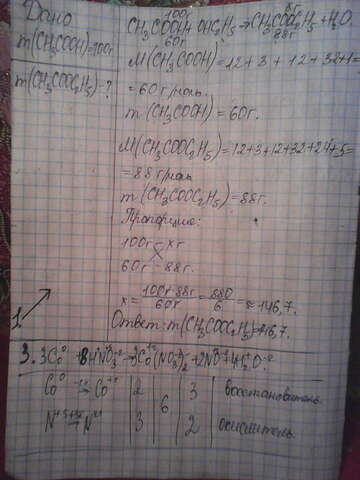 Дано
m(CH₃COOH)=100г
m(CH₃COOC₂H₅)-?
100г xг
CH₃COOH+OHC₂H₅→CH₃COOC₂H₅+H₂O
60г 88г
M(CH₃COOH)=12+3+12+32+1=
=60г/моль.
m(CH₃COOH)=60г.
M(CH₃COOC₂H₅)=12+3+12+32+24+5=
=88г/моль
m(CH₃COOC₂H₅)=88г.
Пропорция:
100г - xг
60г - 88г.
x = 100г·88г / 60г = 880 / 6 = ≈146,7.
Ответ: m(CH₃COOC₂H₅)=146,7.
1
3. 3Co⁰ + 8HNO₃ → 3Co⁺²(NO₃)₂ + 2NO + 4H₂O
Co⁰ → Co⁺² | 2 | 6 | 3 | восстановитель
N⁺⁵ → N⁺² | 3 | 2 | окислитель